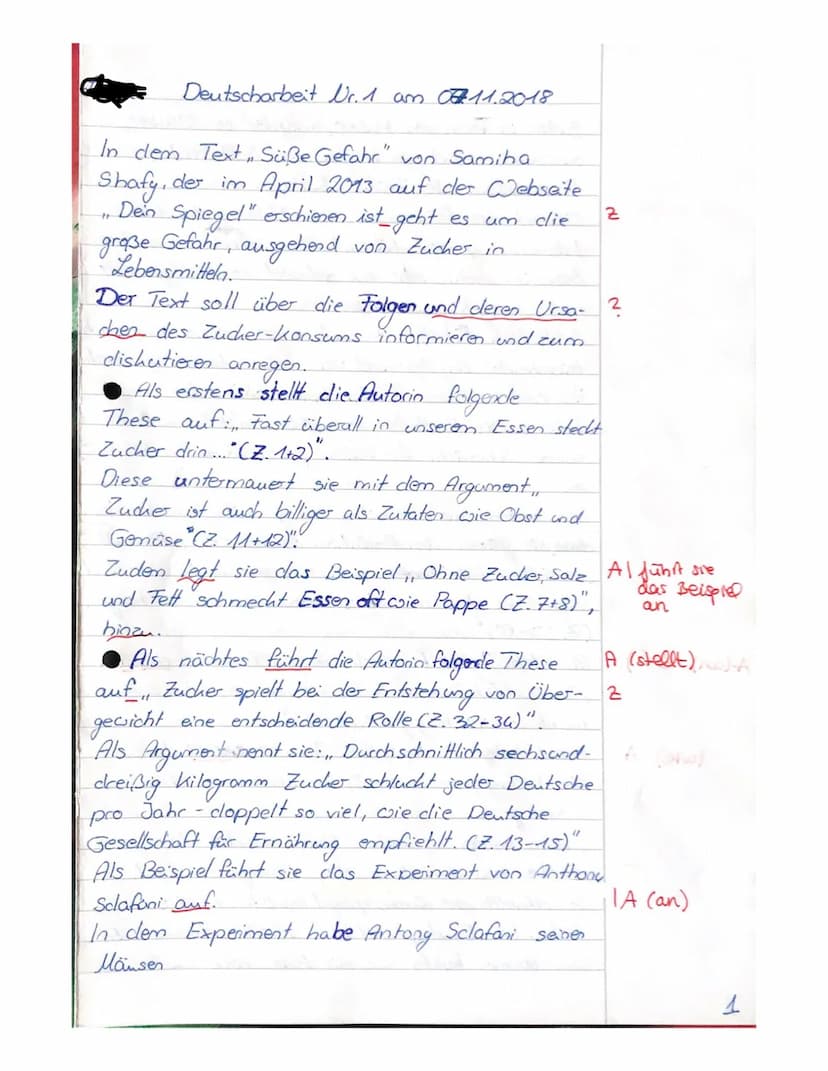 Deutscharbeit Nr. 1 am 07.11.2018
In dem Text „Süße Gefahr" von Samiha
Shafy, der im April 2013 auf der Webseite
„Dein Spiegel" erschienen ist_geht es um die Z
große Gefahr, ausgehend von Zucker in
Lebensmitteln.
Der Text soll über die Folgen und deren Ursa- ?
chen des Zucker-konsums informieren und zum
diskutieren anregen.
Als erstens stellt die Autorin folgende
These auf:„ Fast überall in unserem Essen steckt
Zucker drin..."(Z. 1+2)".
Diese untermauert sie mit dem Argument„
Zucker ist auch billiger als Zutaten wie Obst und
Gemüse"(Z. 11+12)".
Zudem legt sie das Beispiel„ Ohne Zucker, Salz A| führt sie
und Fett schmecht Essen oft wie Pappe (Z. 7+8)", das Beispiel
hinzu. an
Als nächtes führt die Autorin folgende These A (stellt)
auf„ Zucker spielt bei der Entstehung von Über- Z
gewicht eine entscheidende Rolle (Z. 32-34)".
Als Argument nennt sie:„ Durchschnittlich sechsund-
dreißig kilogramm Zucker schluckt jeder Deutsche
pro Jahr - doppelt so viel, wie die Deutsche
Gesellschaft für Ernährung empfiehlt. (Z. 13-15)"
Als Beispiel führt sie das Experiment von Anthony
Sclafani auf. |A (an)
In dem Experiment habe Antony Sclafani seinen
Mäusen
1